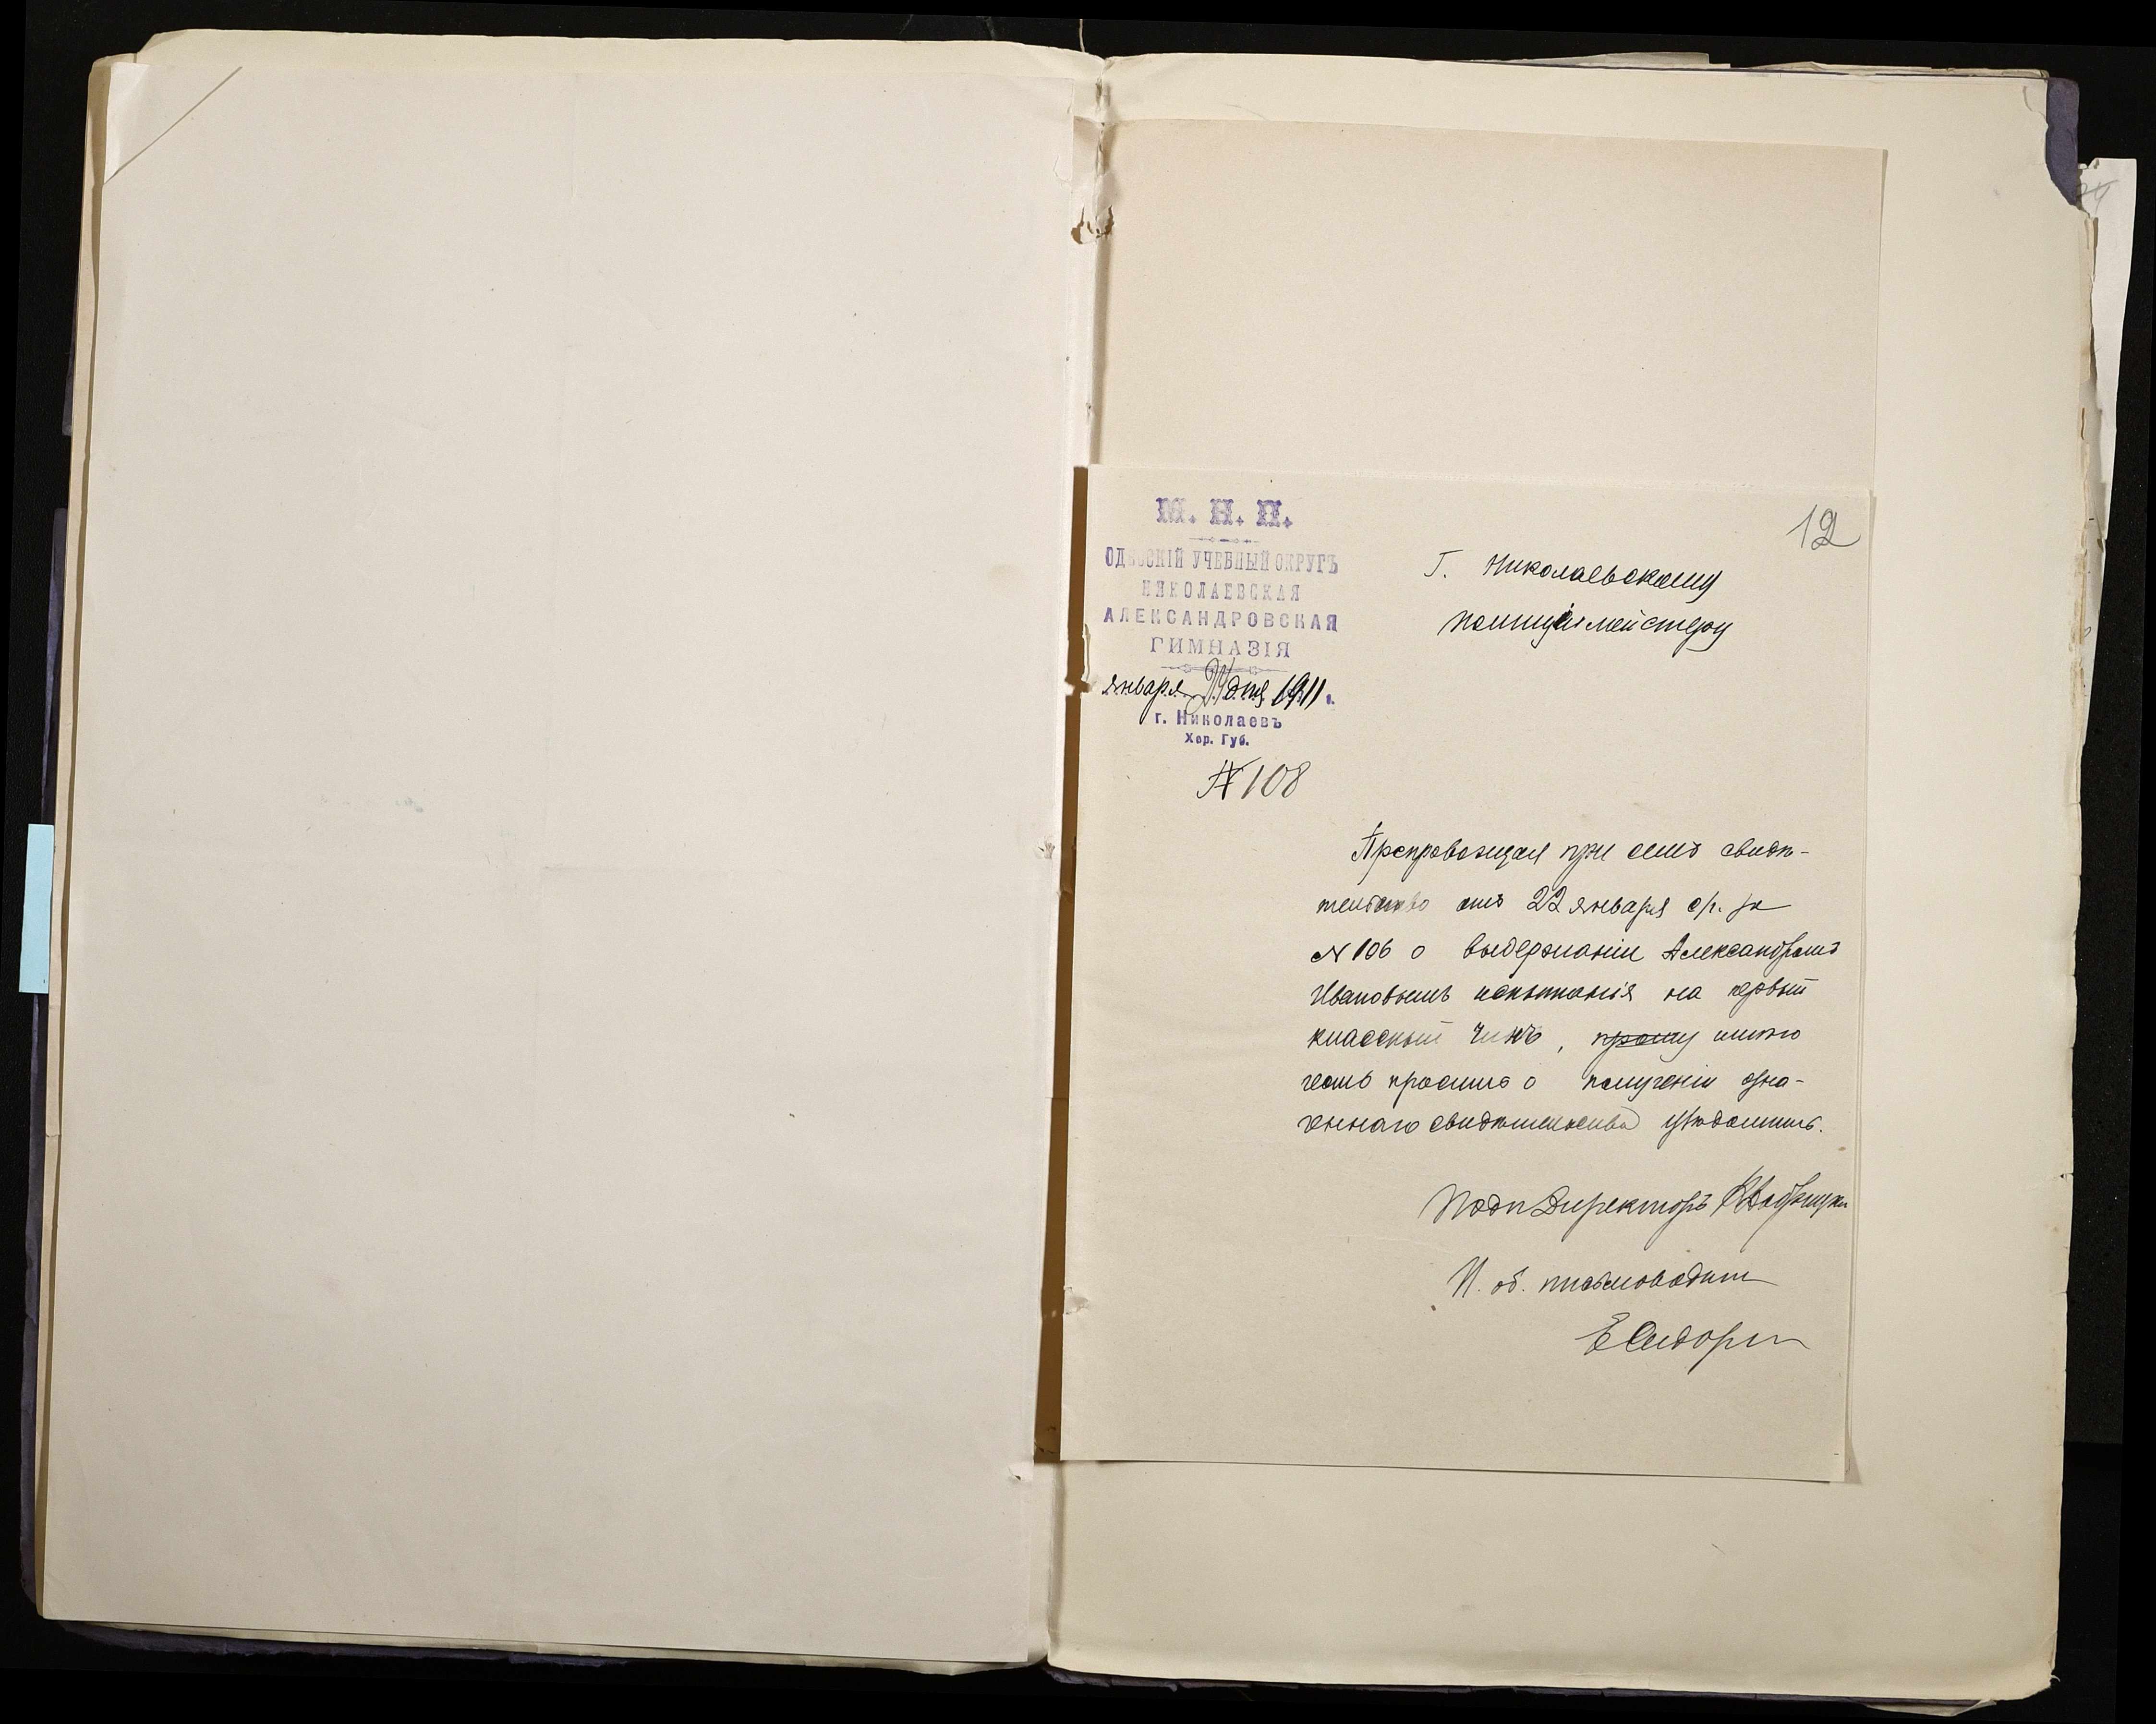 12
М. Н. П.
ОДЕССКІЙ УЧЕБНЫЙ ОКРУГЪ
НИКОЛАЕВСКАЯ
АЛЕКСАНДРОВСКАЯ
ГИМНАЗІЯ
января 24 дня 1911 г.
г. Николаевъ
Хер. Губ.
№ 108
Г. Николаевскому
полицiймейстеру
Препровождая при семъ свидѣ-
тельство отъ 22 января с/г. за
№ 106 о выдержаніи Александромъ
Ивановымъ испытанія на первый
классный чинъ, прошу имѣю
честь просить о полученіи озна-
ченнаго свидѣтельства увѣдомить.
Подп Директоръ
И. об. письмоводит
Е Сидор